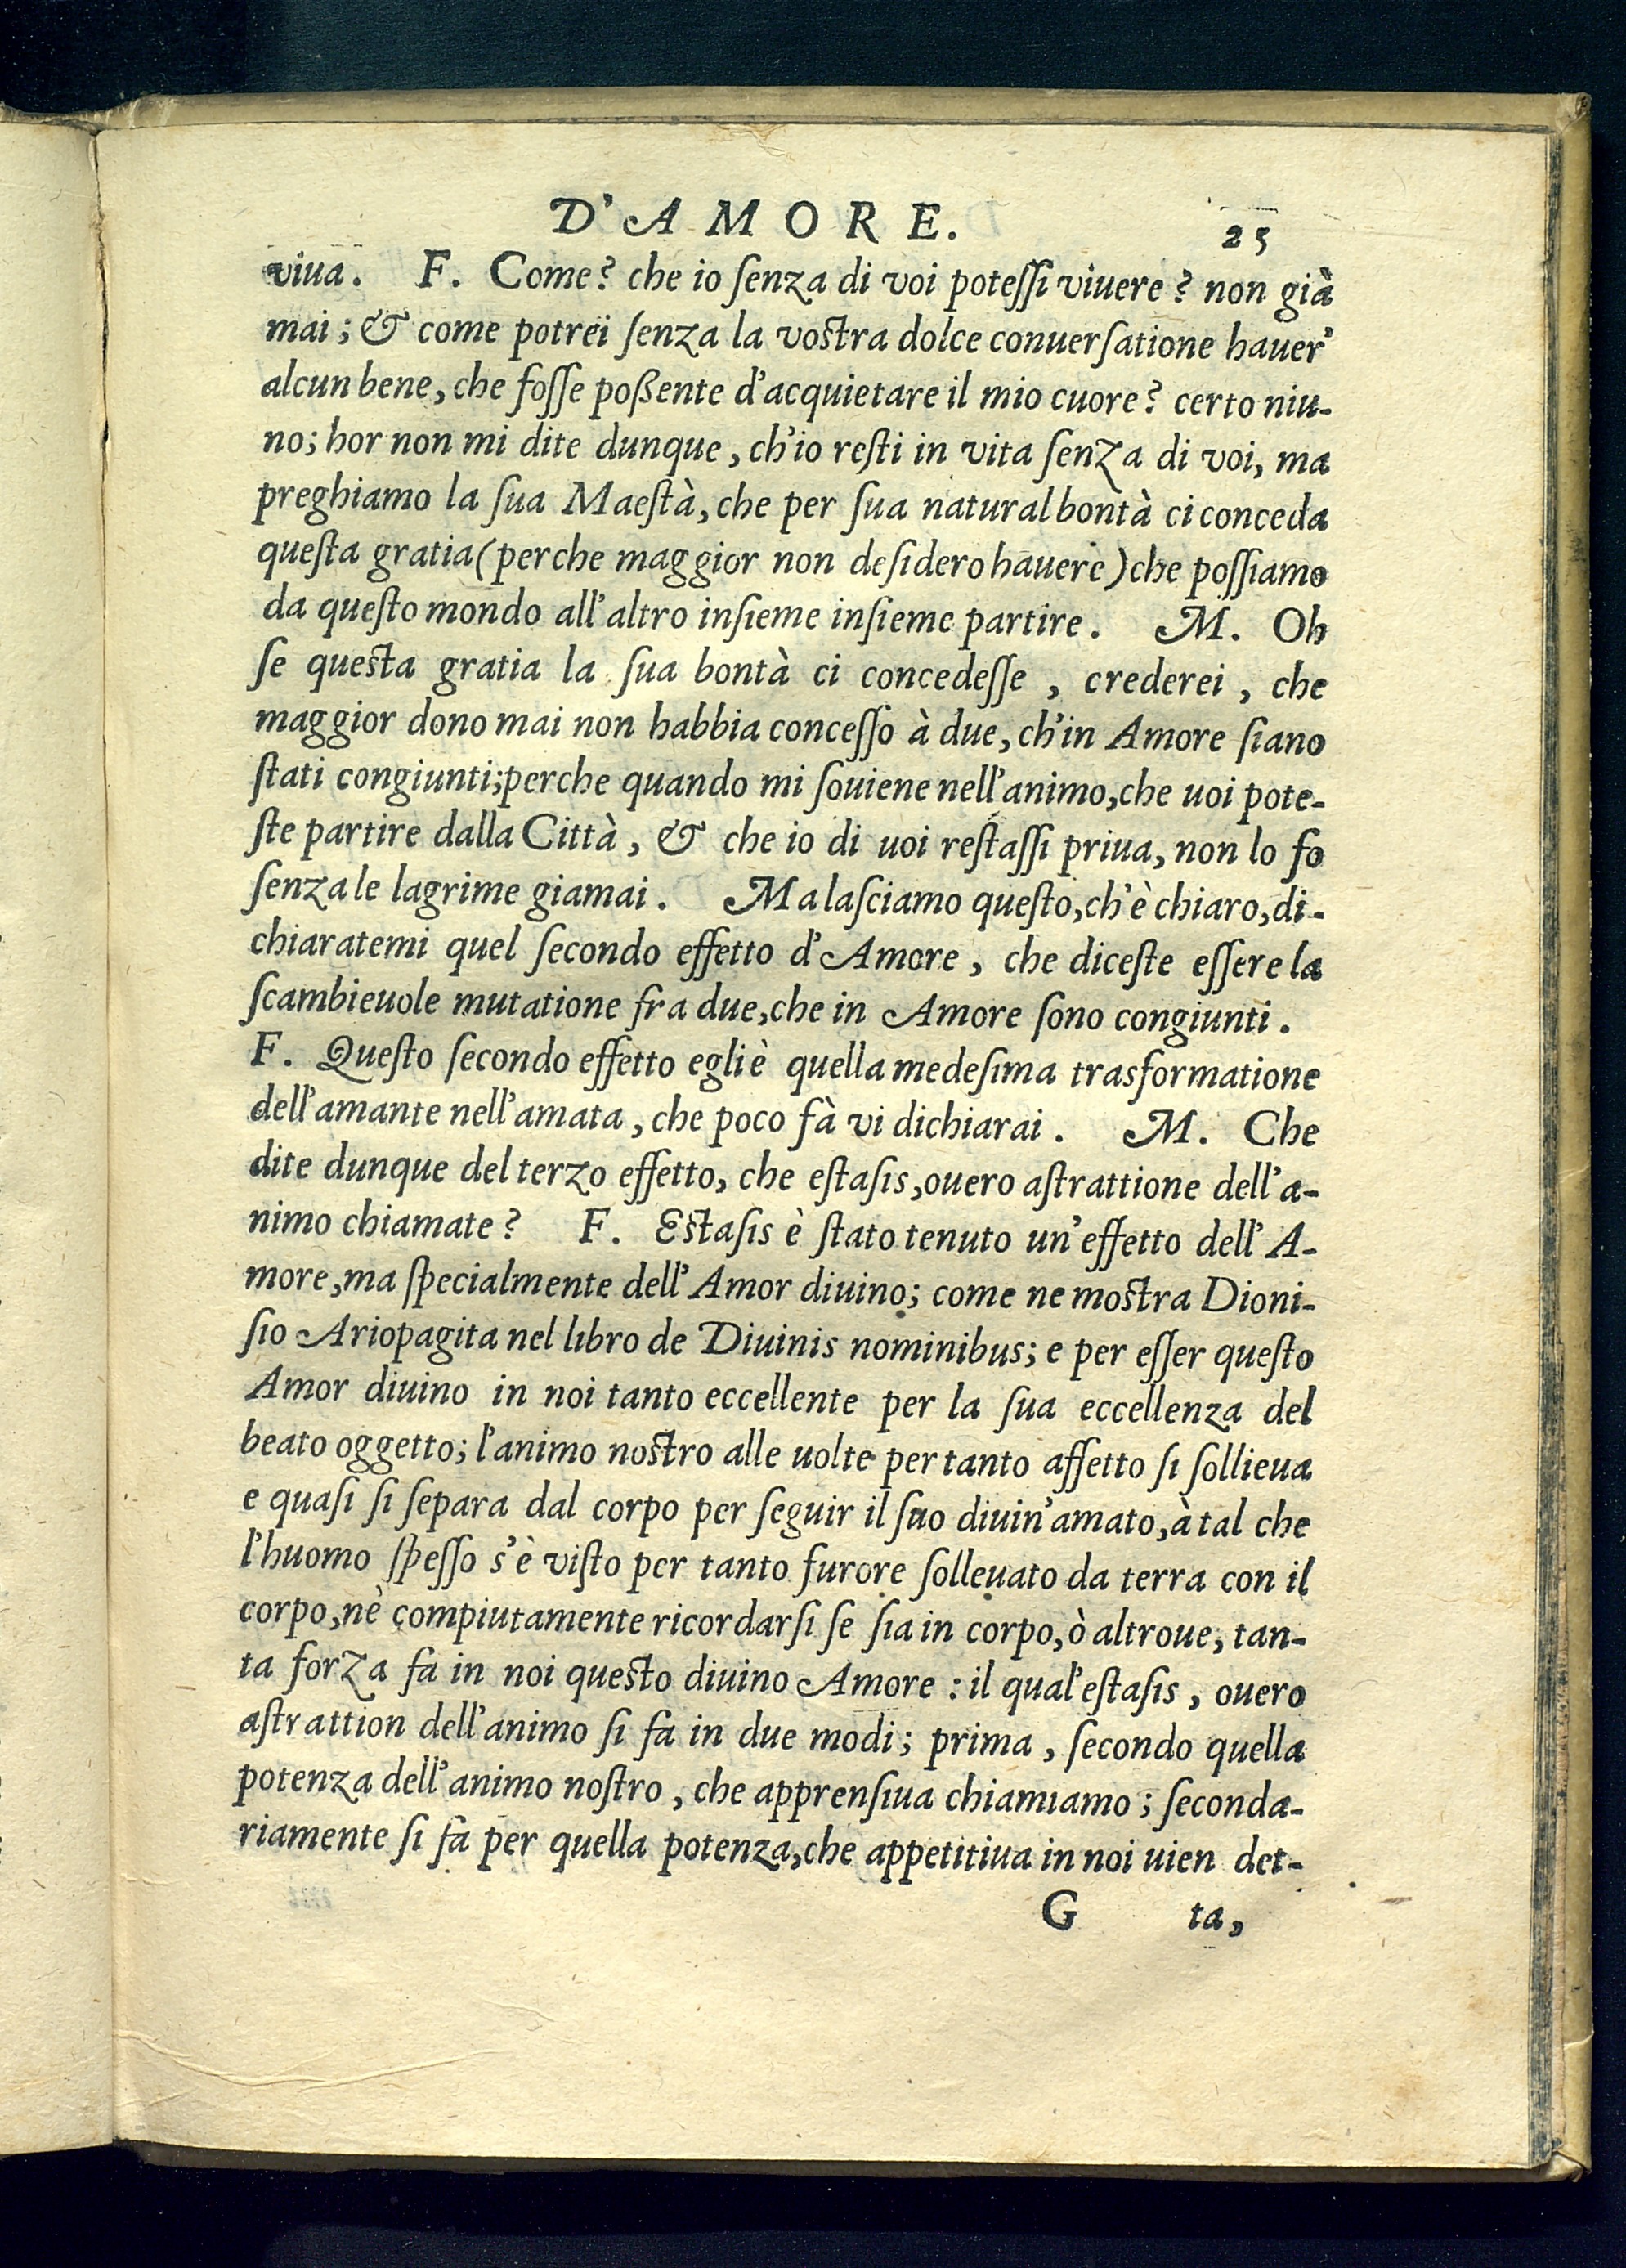 D'AMORE. 25
viua. F. Come? che io ſenza di voi poteſſi viuere? non già
mai; & come potrei ſenza la voſtra dolce conuerſatione hauer'
alcun bene, che foſſe poßente d'acquietare il mio cuore? certo niu-
no; hor non mi dite dunque, ch'io reſti in vita ſenza di voi, ma
preghiamo la ſua Maeſtà, che per ſua natural bontà ci conceda
queſta gratia (perche maggior non deſidero hauere) che poſſiamo
da queſto mondo all'altro inſieme inſieme partire. M. Oh
ſe queſta gratia la ſua bontà ci concedeſſe, crederei, che
maggior dono mai non habbia conceſſo à due, ch'in Amore ſiano
ſtati congiunti; perche quando mi ſouiene nell'animo, che uoi pote-
ſte partire dalla Città, & che io di uoi reſtaſſi priua, non lo fo
ſenza le lagrime giamai. Ma laſciamo queſto, ch'è chiaro, di-
chiaratemi quel ſecondo effetto d'Amore, che diceſte eſſere la
ſcambieuole mutatione fra due, che in Amore ſono congiunti.
F. Queſto ſecondo effetto egli è quella medeſima trasformatione
dell'amante nell'amata, che poco fà vi dichiarai. M. Che
dite dunque del terzo effetto, che eſtaſis, ouero aſtrattione dell'a-
nimo chiamate? F. Eſtaſis è ſtato tenuto un'effetto dell'A-
more, ma ſpecialmente dell'Amor diuino; come ne moſtra Dioni-
ſio Ariopagita nel libro de Diuinis nominibus; e per eſſer queſto
Amor diuino in noi tanto eccellente per la ſua eccellenza del
beato oggetto; l'animo noſtro alle uolte per tanto affetto ſi ſollieua
e quaſi ſi ſepara dal corpo per ſeguir il ſuo diuin'amato, à tal che
l'huomo ſpeſſo s'è viſto per tanto furore ſolleuato da terra con il
corpo, nè compiutamente ricordarſi ſe ſia in corpo, ò altroue, tan-
ta forza fa in noi queſto diuino Amore: il qual'eſtaſis, ouero
aſtrattion dell'animo ſi fa in due modi; prima, ſecondo quella
potenza dell'animo noſtro, che apprenſiua chiamiamo; ſeconda-
riamente ſi fa per quella potenza, che appetitiua in noi uien det-
G ta,